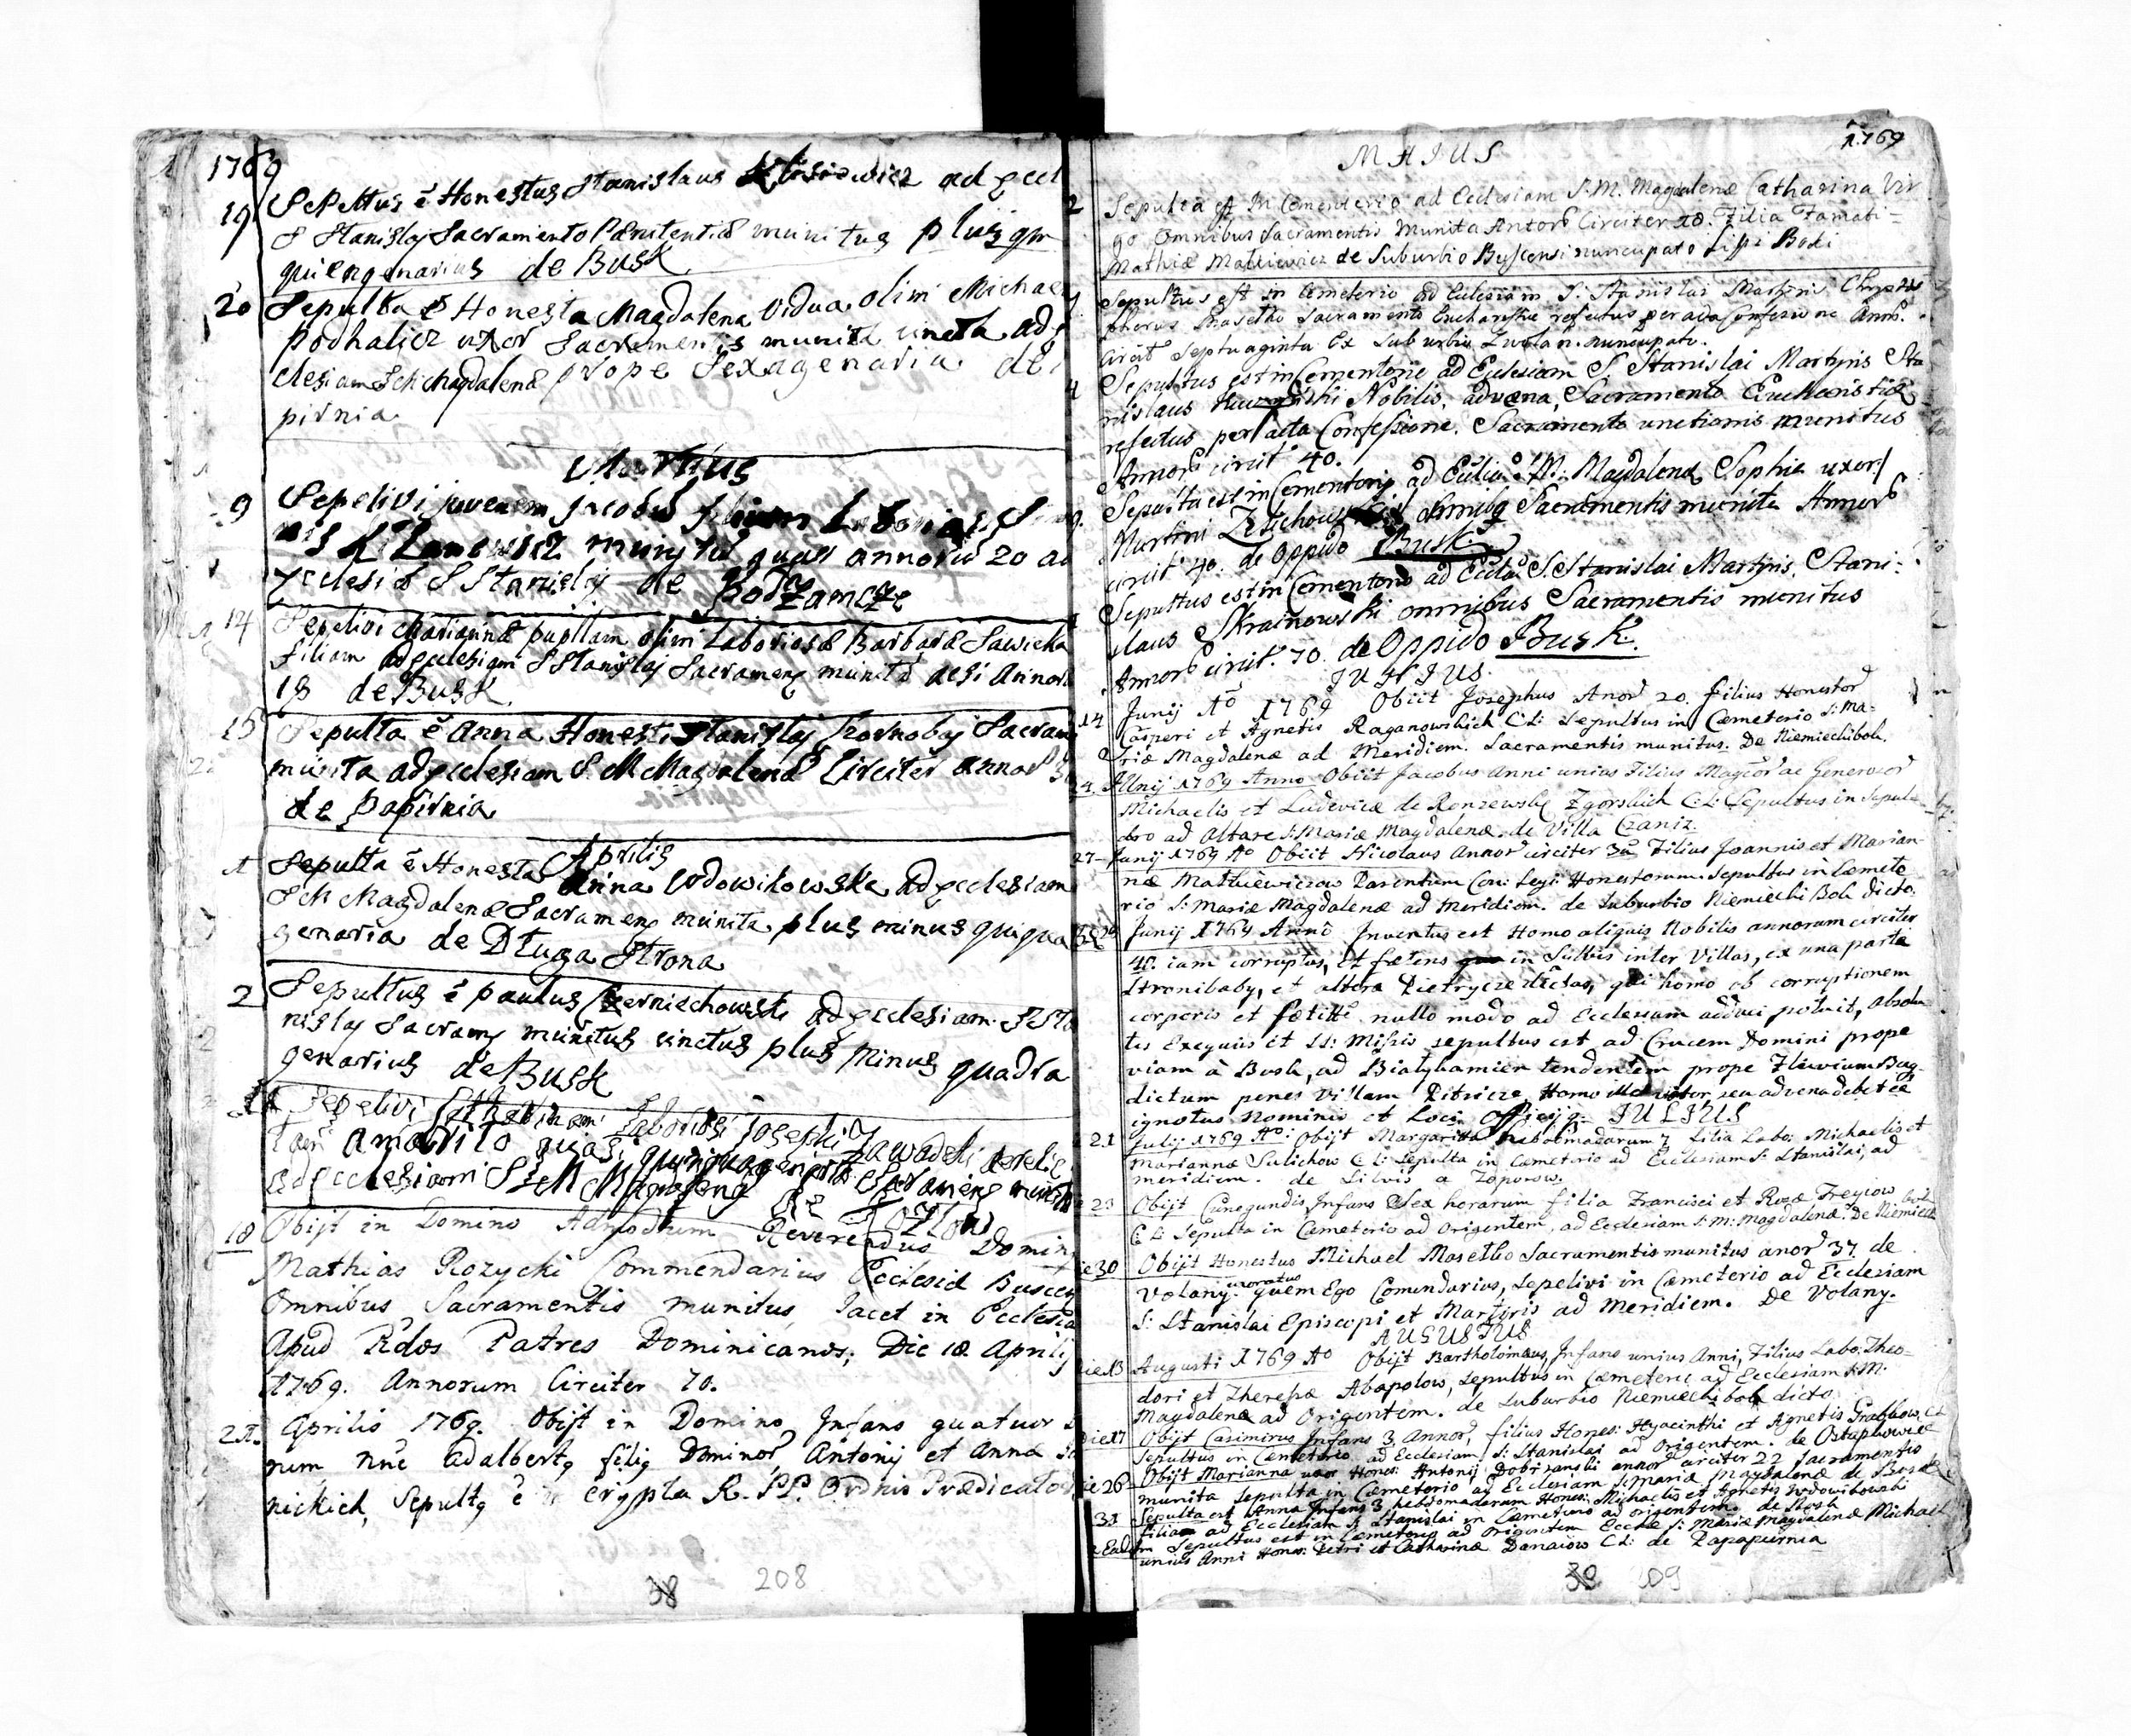 1769
19 Sepultus ẽ Honestus Stanislaus ad eccl
S Stanislaj Sacramento Pœnitentiæ munitus plus qm
quiengenarius de Busk
20 Sepulta ẽ Honesta Magdalena Vidua olim Michae
Podhalicz uxor Sacramentis munita uncta ad
clesiam S M Magdalenæ prope Sexagenaria de
pirnia
Martius
9 Sepelivi juvenem Jacobũ filium Laboriosi
munitũ quasi annorũ 20 ad
Ecclesiã S Stanislaj de Podzamcze
14 Sepelivi Mariannã pupillam olim Laboriosæ Barbaræ Sawicka
filiam ad ecclesiam S Stanislaj Sacramen munitã annor
18 de Busk
15 Sepulta ẽ Anna Honesti Stanislaj Kornobaj Sacram
munita ad ecclesiam S. M Magdalenæ Circiter annor
de Papirnia
Aprilis
1 Sepulta ẽ Honesta Anna Wdowikowska ad ecclesiam
S M Magdalenæ Sacramen munita plus minus quiqua
genaria de Długa Strona
2 Sepultus ẽ paulus Czerniechowski ad ecclesiam S Sta
nislaj Sacram munitus unctus plus minus quadra
genarius de Busk
Sepelivi Laboriosi Josephi Zawadski
ad ecclesiam S M Sacramen munit
de Kozlow
18 Obijt in Domino Admodum Reverendus Domin
Mathias Rozycki Commendarius Ecclesiæ Buscen
Omnibus Sacramentis munitus, Jacet in Ecclesia
Apud Rdos Patres Dominicanos; Die 18 Aprilis
1769. Annorum Circiter 70.
21. Aprilis 1769. Obijt in Domino Infans quatuor
num nñe Adalbertq filiq Dominor Antonij et Anna
nickich, Sepultq ẽ in Crypta R. PP. Ordnis Prædicator
38 208
1769
MAIUS
2 Sepulta est In Cementerio ad Ecclesiam S. M. Magdalenæ Catharina Vir
go Omnibus Sacramentis Munita Annor Circiter 20. Filia Famati=
Mathiæ Matkiewicz de Suburbio Buscensi nuncupato Lipi Boki
Sepultus est in Cemeterio ad Eclesiam S: Stanislai Martyris Chrysto
pherus Masetko Sacramento Eucharystiæ refectus peracta Confesione Ann.
circit Septuaginta Ex Suburbio Zwolan nuncupato.
4 Sepultus est in Cementerio ad Eclesiam S. Stanislai Martyris Sta
nislaus Nobilis, advena, Sacramento Eucharistiæ
refectus peracta Confessione. Sacramento unctionis munitus
Annor circit 40.
9. Sepulta est in Cementerio ad Eccliã S: M: Magdalenæ Sophia uxor
Martini omnibq Sacramentis munita Annor
circit 40. de Oppido Busk
Sepultus est in Cementerio ad Eccliã S. Stanislai Martyris, Stani=
slaus Skrainowski omnibus Sacramentis munitus
Annor circit. 70. de Oppido Busk.
JUNIUS.
14 Junij Aõ 1769 Obiit Josephus Anor 20. filius Honestor
Casperi et Agnetis Raganowskich C: L: Sepultus in Cæmeterio S: Ma-
riæ Magdalenæ ad Meridiem. Sacramentis munitus. De Niemiecki bok.
24. Junij 1769 Anno Obiit Jacobus Anni unius Filius Magcor ac Generosor
Michaelis et Ludovicæ de Ronzewski Zgorskich C: L: Sepultus in Sepul-
chro ad Altare S: Mariæ Magdalenæ. de Villa Czaniz.
27- Junij 1769 Ao Obiit Nicolaus Annor circiter 30 Filius Joannis et Marian-
næ Mathiewiczow Parentum Con: Legi: Honestorum. Sepultus in Cæmete
rio S: Mariæ Magdalenæ ad meridiem. de Suburbio Niemiecki Bok dicto.
Junij 1769 Anno Inventus est Homo aliquis Nobilis annorum circiter
40. iam corruptus, et fætens in Silvis inter Villas, ex una parte
Stronibaby, et altera Pietrycze dictas, qui homo ob corruptionem
corporis et fætitte nullo modo ad Ecclesiam adduci potuit, absolu
tis Exequiis et SS: Missis sepultus est ad Crucem Domini prope
viam à Busk, ad Białykamien tendentem prope Fluvium Bug
dictum penes Villam Pitricze, Homo ille viator, seu advena debet eê
ignotus Nominis et Loci, Officijq. JULIUS
21 Julij 1769 Ao: Obijt Margarita hebdomadarum 7 Filia Labo: Michaelis et
Mariannæ Sulichow C: L: Sepulta in Cæmeterio ad Ecclesiam S: Stanislai, ad
meridiem. de Silvis a Toporow.
23 Obijt Cunegundis Infans Sex horarum filia Francisci et Rosæ Freyiow
C: L: Sepulta in Cæmeterio ad Origentem, ad Ecclesiam S: M: Magdalenæ. De Niemiecki bok
ie 30 Obijt Honestus Michael Masetko Sacramentis munitus anor 37. de
Volany. moratus quem Ego Comendarius, Sepelivi in Cæmeterio ad Ecclesiam
S: Stanislai Episcopi et Martyris ad Meridiem. De Volany.
AUGUSTUS
ie 13 Augusti 1769 Ao Obijt Bartholomæus, Infans unius Anni, Filius Labo: Theo-
dori et Theresæ Abapolow, sepultus in Cæmeterio ad Ecclesiam S: M:
Magdalena ad Origentem. de Suburbio Niemiecki bok dicto.
Die 17 Obijt Casimirus Infans 3. Annor, filius Hones: Hyacinthi et Agnetis Grabbow, C L
Sepultus in Cæmeterio ad Ecclesiam S: Stanislai ad Origentem. de Ostaphowic
ie 26 Obijt Marianna uxor Hones: Antonij Dobrzanski annor circiter 22 Sacramentis
munita Sepulta in Cæmeterio ad Ecclesiam S: Mariæ Magdalenæ de Busk
31 Sepulta est Anna Infans 3 hebdomadarum Hones: Michaelis et Agnetis Wdowikowski
filia ad Ecclesiam S: Stanislai in Cæmeterio ad origentem. de Busk
Eadem Sepultus est in Cæmeterio ad Origentem Eccłæ S: Mariæ Magdalenæ Michael
unius Anni Hones: Petri et Catharinæ Danaiow C L: de Papapiernia
39 209